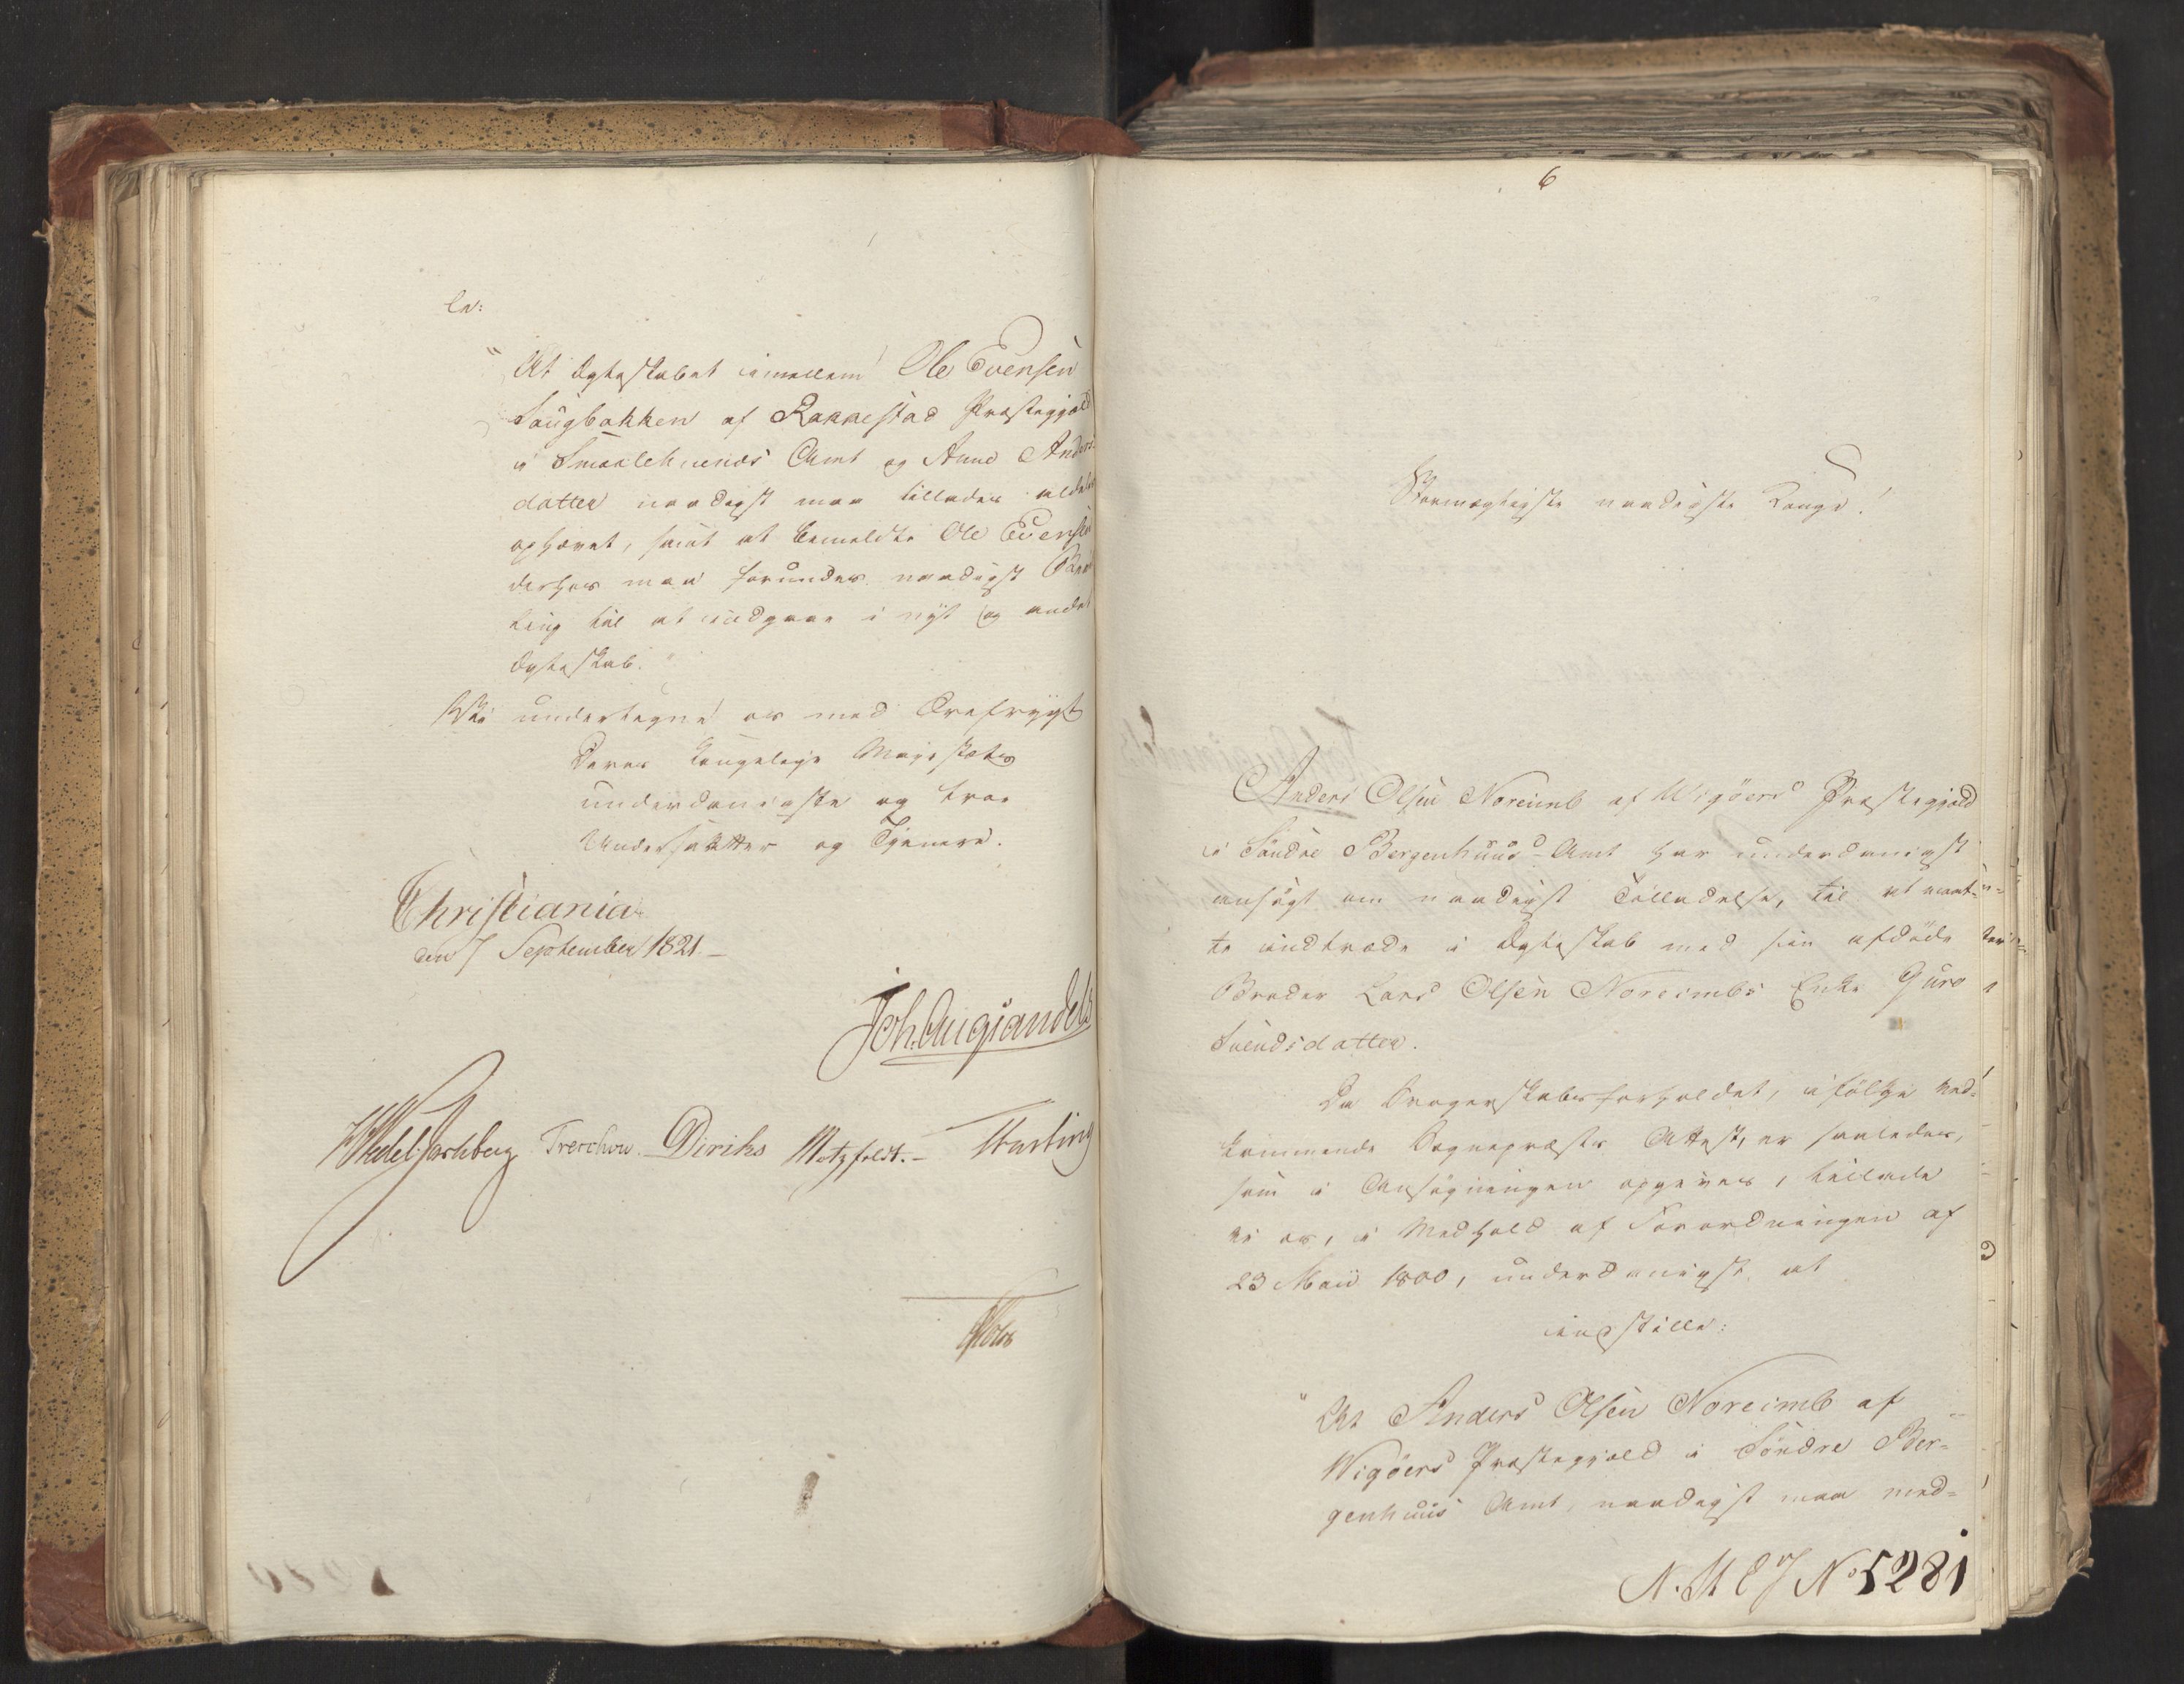 le:
"At Ægteskabet imellem Ole Evensen
Saugbakken af Rakkestad Præstegjæld
i Smaalehnenes Amt og Anne Anders-
datter naadigst maa tillades aldeles
ophævet, samt at bemeldte Ole Evensen
derhos maa forundes naadigst Bevil-
ling til at indgaae i nyt og andet
Ægteskab."
Vi undertegne os med Ærefrygt
Deres Kongelige Majestæts
underdanigste og troe
Undersaatter og Tjenere.
Christiania
den 7 September 1821.
Joh. Aug. Sandels
Wedel Jarlsberg Treschow. Diriks Motzfeldt. Harling
Holst
6
Stormægtigste naadigste Konge!
Anders Olsen Noreimb af Wigöers Præstegjæld
i Söndre Bergenhuus-Amt har underdanigst
ansögt om naadigst Tilladelse, til at maat-
te indtræde i Ægteskab med sin afdöde
Broder Lars Olsen Noreimbs Enke Guro
Svendsdatter.
Da Svogerskabsforholdet, ifölge ved-
kommende Sognepræsts Attest, er saaledes,
som i Ansögningen opgives, tillade
vi os, i Medhold af Forordningen af
23 Maii 1800, underdanigst at
indstille:
"At Anders Olsen Noreimb af
Wigöers Præstegjæld i Söndre Ber-
genhuus Amt, naadigst maa med-
No 5281